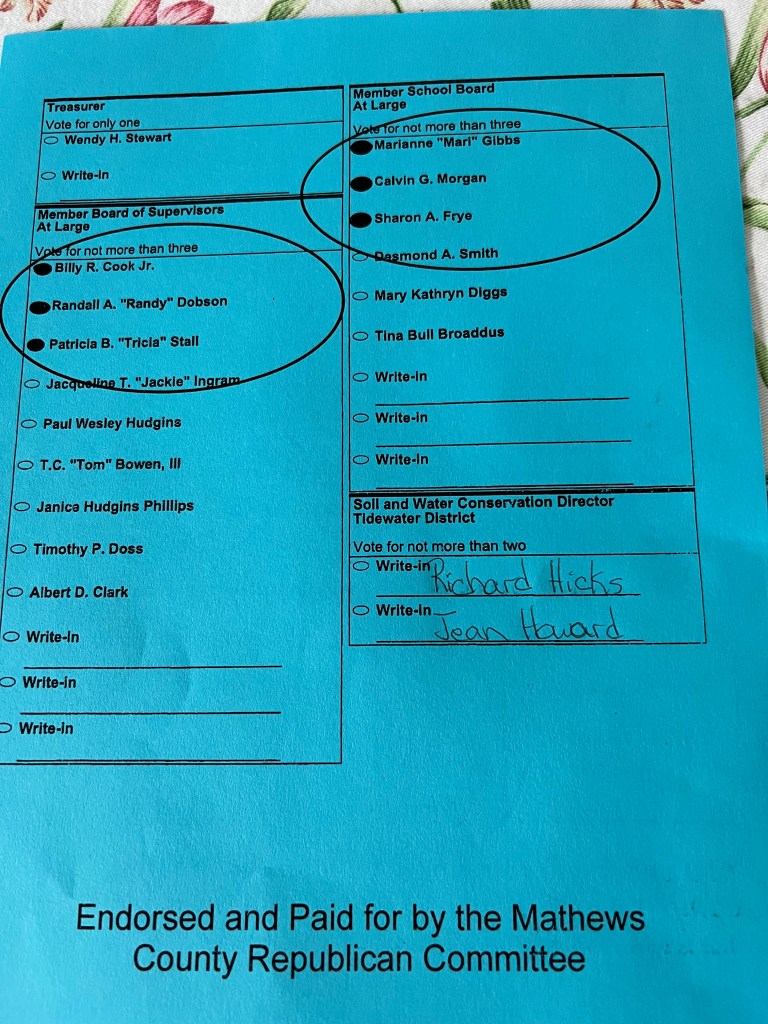 Treasurer
Vote for only one
Wendy H. Stewart
Write-In
Member Board of Supervisors
At Large
Vote for not more than three
Billy R. Cook Jr.
Randall A. "Randy" Dobson
Patricia B. "Tricia" Stall
Jacqueline T. "Jackie" Ingram
Paul Wesley Hudgins
T.C. "Tom" Bowen, III
Janice Hudgins Phillips
Timothy P. Doss
Albert D. Clark
Write-In
Write-in
Write-in
Member School Board
At Large
Vote for not more than three
Marianne "Mari" Gibbs
Calvin G. Morgan
Sharon A. Frye
Desmond A. Smith
Mary Kathryn Diggs
Tina Bull Broaddus
Write-in
Write-in
Write-In
Soil and Water Conservation Director
Tidewater District
Vote for not more than two
Write-in Richard Hicks
Write-In Jean Howard
Endorsed and Paid for by the Mathews
County Republican Committee